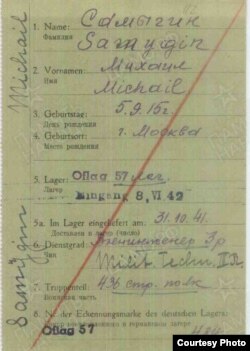 Michail
Samygin
1. Name:
Фамилия
Самыгин
Samygin
2. Vornamen:
Имя
Михаил
Michail
3. Geburtstag:
День рождения
5.9.15г.
4. Geburtsort:
Место рождения
г. Москва
5. Lager:
Лагер
Oflag 57
Eingang 8. VI 42
5a. Im Lager eingeliefert am:
Доставлен в лагер (число)
31.10.41.
6. Dienstgrad:
Чин
3р.
Milit. Techn.
7. Truppenteil:
Воинская часть
436 стр. полк
8. Nr. der Erkennungsmarke des deutschen Lagers:
Oflag 57
Courtesy Photo